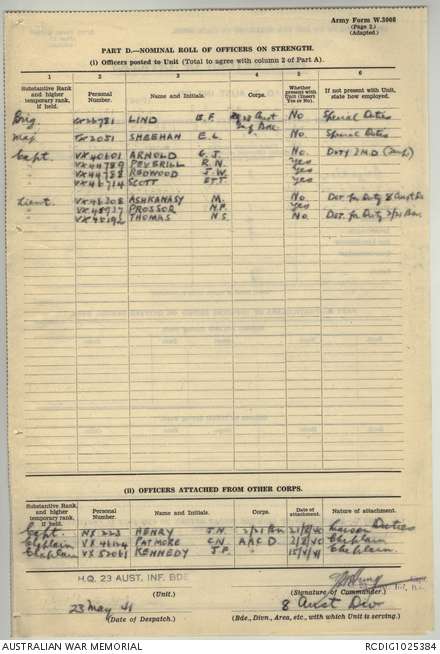 Army Form W.3008
(Page 2.)
(Adapted.)
PART D.—NOMINAL ROLL OF OFFICERS ON STRENGTH.
(i) Officers posted to Unit (Total to agree with column 2 of Part A).
1 2 3 4 5 6
Substantive Rank and higher temporary rank, if held. Personal Number. Name and Initials. Corps. Whether present with Unit (Insert Yes or No). If not present with Unit, state how employed.
Brig. VX26781 LIND E.F. 23 Aust Inf Bde No Special Duties
Maj TX2051 SHEEHAN E.L. No Special Duties
Capt. VX40601 ARNOLD G.J. No. Duty
VX44789 PEVERILL R.N. Yes
VX44788 REDWOOD J.W. Yes
VX46714 SCOTT Yes
Lieut VX46308 ASHKANASY M. No. Det. for Duty 8 Aust Div
VX45937 PROSSOR N.P. Yes
VX45192 THOMAS N.S. No. Det. for Duty 2/21 Bn
(ii) OFFICERS ATTACHED FROM OTHER CORPS.
Substantive Rank and higher temporary rank, if held. Personal Number. Name and Initials. Corps. Date of attachment. Nature of attachment.
Capt. NX 223 HENRY J.N. 2/21 Bn Liaison Duties
Chaplain VX PATMORE C.N. AACD 2/8/40 Chaplain
Chaplain VX 52061 KENNEDY J.P. 15/4/41 Chaplain
H.Q. 23 AUST. INF. BDE
(Unit.) (Signature of Commander.)
23 May 41 8 Aust Div
(Date of Despatch.) (Bde., Divn., Area, etc., with which Unit is serving.)
AUSTRALIAN WAR MEMORIAL RCDIG1025384